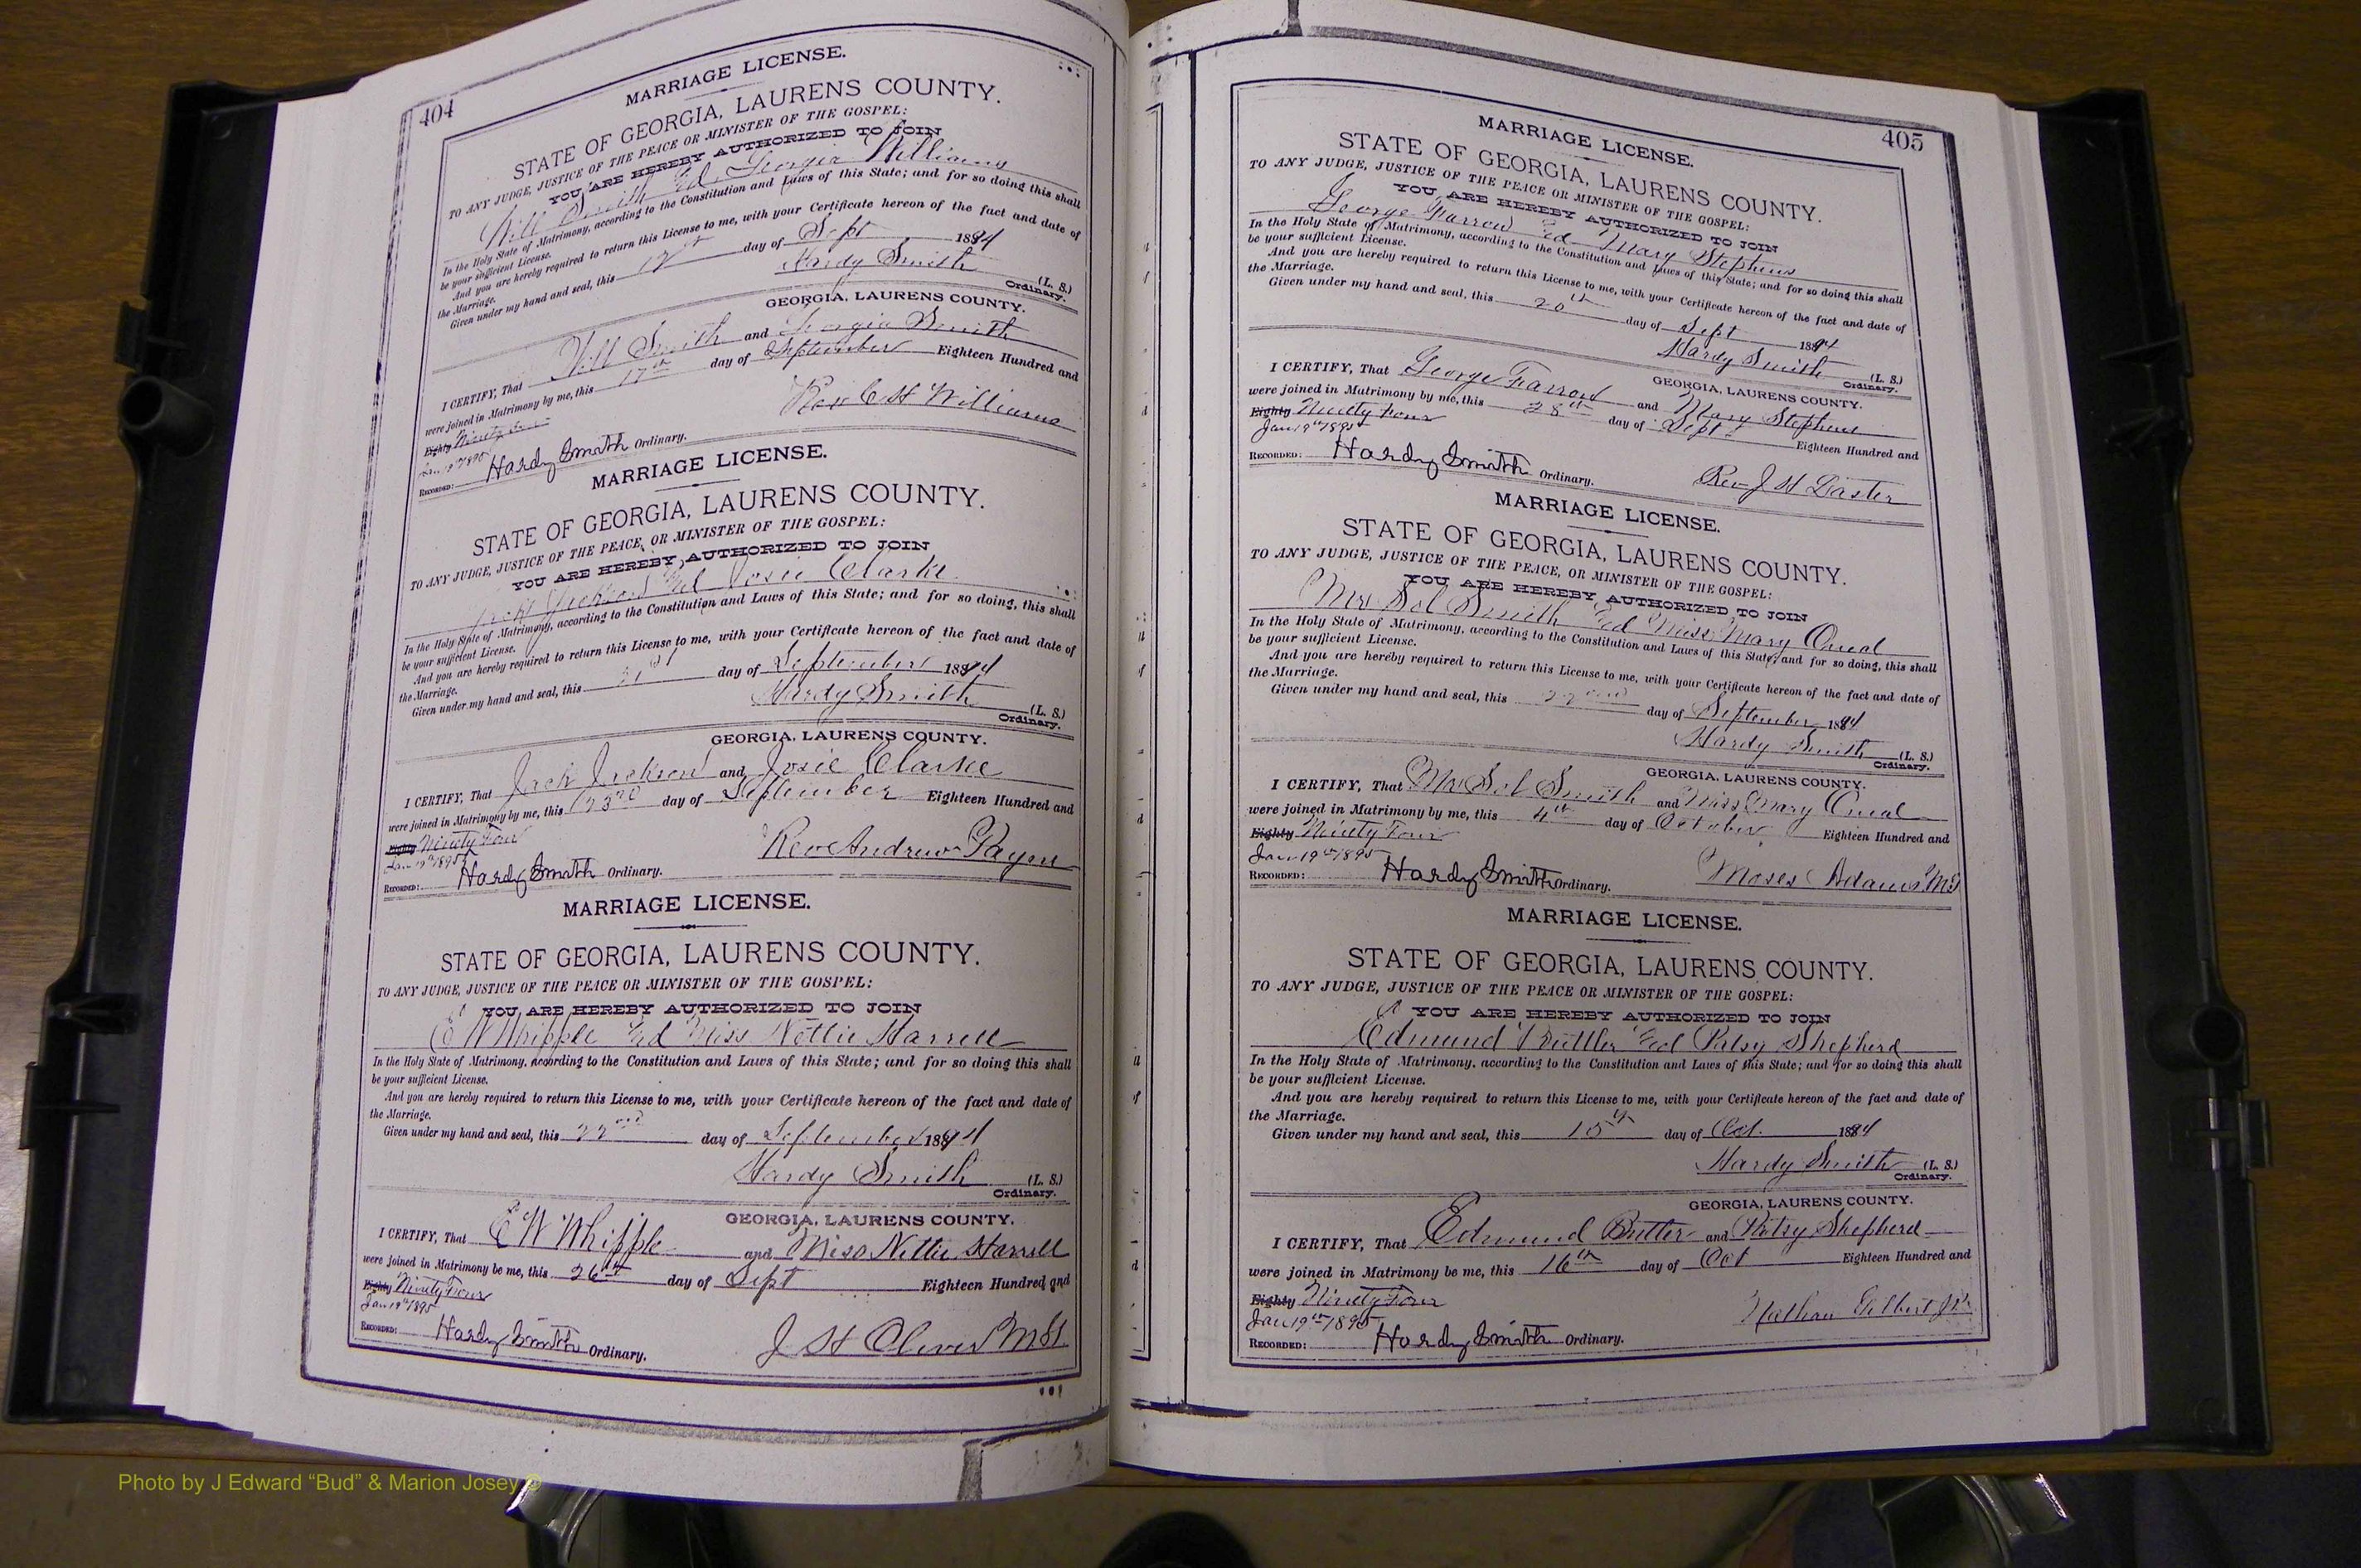 404
MARRIAGE LICENSE.
STATE OF GEORGIA, LAURENS COUNTY.
TO ANY JUDGE, JUSTICE OF THE PEACE OR MINISTER OF THE GOSPEL:
YOU ARE HEREBY AUTHORIZED TO JOIN
Will Smith Georgia Williams
In the Holy State of Matrimony, according to the Constitution and Laws of this State; and for so doing this shall
be your sufficient License.
And you are hereby required to return this License to me, with your Certificate hereon of the fact and date of
the Marriage.
Given under my hand and seal, this day of Sept 1894
Hardy Smith (L. S.)
Ordinary.
GEORGIA, LAURENS COUNTY.
I CERTIFY, That Will Smith and Georgia Smith
were joined in Matrimony by me, this 17th day of September Eighteen Hundred and
Eighty Ninety Four
Jan 19th 1895 Rev C H Williams
RECORDED: Hardy Smith Ordinary.
MARRIAGE LICENSE.
STATE OF GEORGIA, LAURENS COUNTY.
TO ANY JUDGE, JUSTICE OF THE PEACE, OR MINISTER OF THE GOSPEL:
YOU ARE HEREBY AUTHORIZED TO JOIN
Jack Jackson Josie Clarke
In the Holy State of Matrimony, according to the Constitution and Laws of this State; and for so doing, this shall
be your sufficient License.
And you are hereby required to return this License to me, with your Certificate hereon of the fact and date of
the Marriage.
Given under my hand and seal, this 21st day of September 1894
Hardy Smith (L. S.)
Ordinary.
GEORGIA, LAURENS COUNTY.
I CERTIFY, That Jack Jackson and Josie Clarke
were joined in Matrimony by me, this 23rd day of September Eighteen Hundred and
Ninety Four
Jan 19th 1895 Rev Andrew Payne
RECORDED: Hardy Smith Ordinary.
MARRIAGE LICENSE.
STATE OF GEORGIA, LAURENS COUNTY.
TO ANY JUDGE, JUSTICE OF THE PEACE OR MINISTER OF THE GOSPEL:
YOU ARE HEREBY AUTHORIZED TO JOIN
E W Whipple Miss Nettie Harrell
In the Holy State of Matrimony, according to the Constitution and Laws of this State; and for so doing this shall
be your sufficient License.
And you are hereby required to return this License to me, with your Certificate hereon of the fact and date of
the Marriage.
Given under my hand and seal, this 22nd day of September 1894
Hardy Smith (L. S.)
Ordinary.
GEORGIA, LAURENS COUNTY.
I CERTIFY, That E W Whipple and Miss Nettie Harrell
were joined in Matrimony be me, this 26th day of Sept Eighteen Hundred and
Eighty Ninety Four
Jan 19th 1895
RECORDED: Hardy Smith Ordinary. J H
405
MARRIAGE LICENSE.
STATE OF GEORGIA, LAURENS COUNTY.
TO ANY JUDGE, JUSTICE OF THE PEACE OR MINISTER OF THE GOSPEL:
YOU ARE HEREBY AUTHORIZED TO JOIN
George Farrow Mary Stephens
In the Holy State of Matrimony, according to the Constitution and Laws of this State; and for so doing this shall
be your sufficient License.
And you are hereby required to return this License to me, with your Certificate hereon of the fact and date of
the Marriage.
Given under my hand and seal, this 20th day of Sept 1894
Hardy Smith (L. S.)
Ordinary.
GEORGIA, LAURENS COUNTY.
I CERTIFY, That George Farrow and Mary Stephens
were joined in Matrimony by me, this 28th day of Sept Eighteen Hundred and
Eighty Ninety Four
Jan 19th 1895
RECORDED: Hardy Smith Ordinary. Rev J H Daster
MARRIAGE LICENSE.
STATE OF GEORGIA, LAURENS COUNTY.
TO ANY JUDGE, JUSTICE OF THE PEACE, OR MINISTER OF THE GOSPEL:
YOU ARE HEREBY AUTHORIZED TO JOIN
Mr Sol Smith Miss Mary Oneal
In the Holy State of Matrimony, according to the Constitution and Laws of this State, and for so doing, this shall
be your sufficient License.
And you are hereby required to return this License to me, with your Certificate hereon of the fact and date of
the Marriage.
Given under my hand and seal, this 22nd day of September 1894
Hardy Smith (L. S.)
Ordinary.
GEORGIA, LAURENS COUNTY.
I CERTIFY, That Mr Sol Smith and Miss Mary Oneal
were joined in Matrimony by me, this 4th day of October Eighteen Hundred and
Eighty Ninety Four
Jan 19th 1895
RECORDED: Hardy Smith Ordinary. Moses Adams MG
MARRIAGE LICENSE.
STATE OF GEORGIA, LAURENS COUNTY.
TO ANY JUDGE, JUSTICE OF THE PEACE OR MINISTER OF THE GOSPEL:
YOU ARE HEREBY AUTHORIZED TO JOIN
Edmund Buttler Patsy Shepherd
In the Holy State of Matrimony, according to the Constitution and Laws of this State; and for so doing this shall
be your sufficient License.
And you are hereby required to return this License to me, with your Certificate hereon of the fact and date of
the Marriage.
Given under my hand and seal, this 15th day of Oct. 1894
Hardy Smith (L. S.)
Ordinary.
GEORGIA, LAURENS COUNTY.
I CERTIFY, That Edmund Butler and Patsy Shepherd
were joined in Matrimony be me, this 16th day of Oct Eighteen Hundred and
Eighty Ninety Four
Jan 19th 1895 Nathan Gilbert
RECORDED: Hardy Smith Ordinary.
Photo by J Edward “Bud” & Marion Josey ©